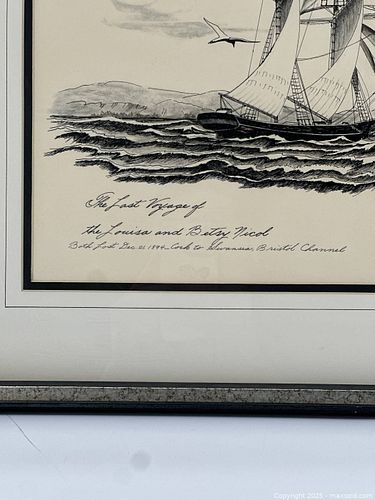 The Last Voyage of
the Louisa and Betsy Nicol
Both Lost Dec. 21 1894 - Cork to Swansea, Bristol Channel
Copyright 2025 - maxsold.com